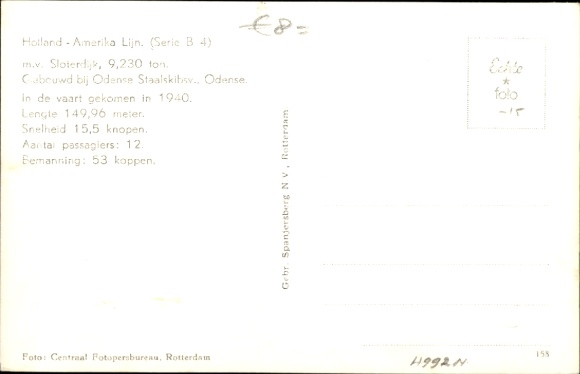 € 8=
Holland - Amerika Lijn. (Serie B 4)
m.v. Sloterdijk, 9,230 ton.
Gebouwd bij Odense Staalskibsv., Odense.
In de vaart gekomen in 1940.
Lengte 149,96 meter.
Snelheid 15,5 knopen.
Aantal passagiers: 12.
Bemanning: 53 koppen.
Echte
*
foto
-15
Gebr. Spanjersberg N.V., Rotterdam
Foto: Centraal Fotopersbureau, Rotterdam
H992N
158